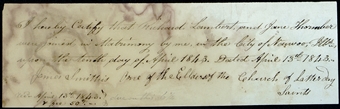 I hereby Certify that Richard Lambert and Jane Thornber
were joined in Matrimony by me, in the City of Nauvoo, Ills.
upon the tenth day of April 1843. Dated April 13th 1843.
one of the Elders of the Church of Latter day
Saints
April 13th 1843.